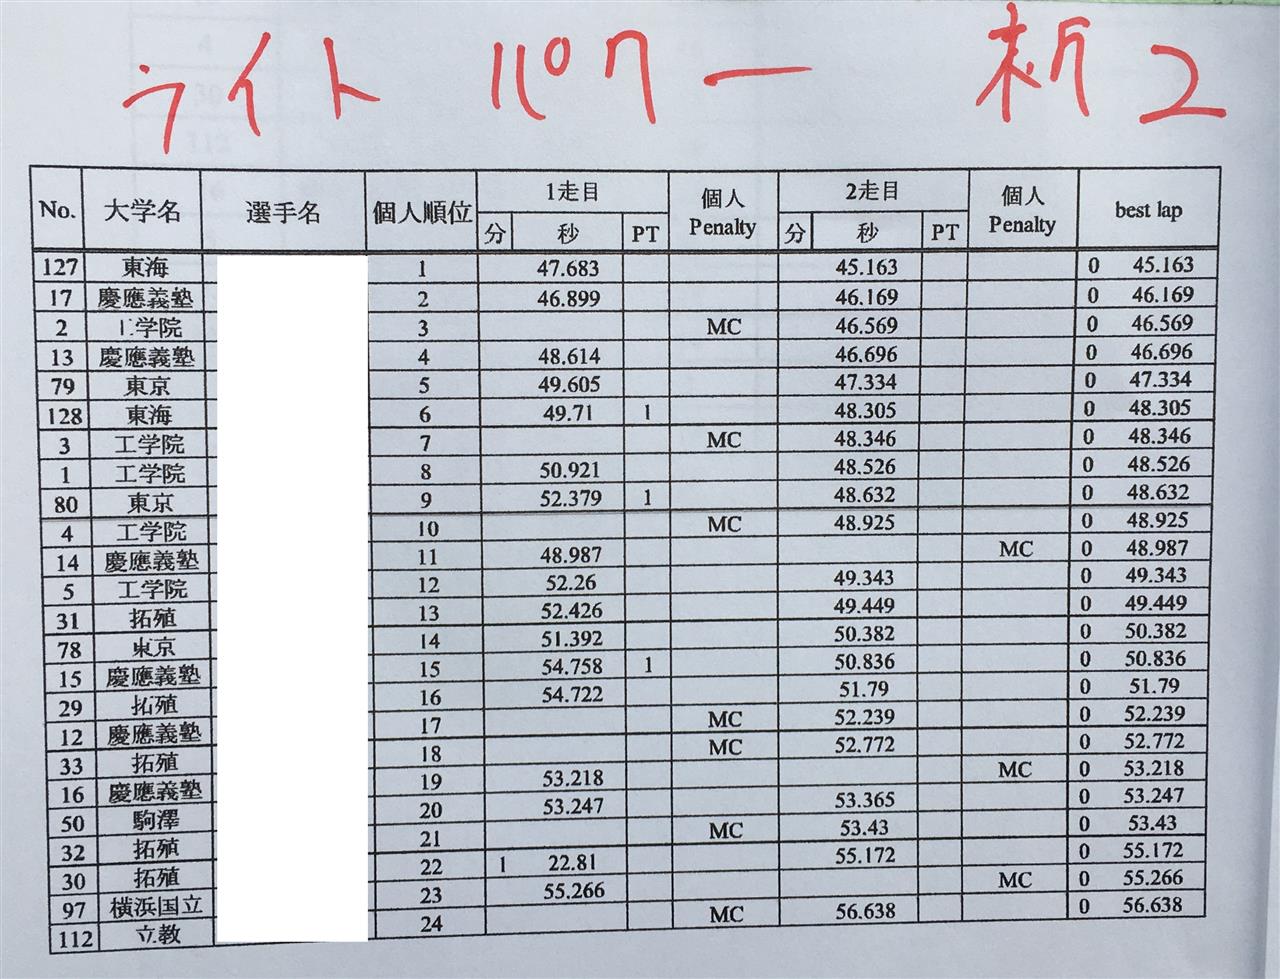 ライト パワー 新2
No. 大学名 選手名 個人順位 1走目 個人 Penalty 2走目 個人 Penalty best lap
分 秒 PT 分 秒 PT
127 東海 1 47.683 45.163 0 45.163
17 慶應義塾 2 46.899 46.169 0 46.169
2 工学院 3 MC 46.569 0 46.569
13 慶應義塾 4 48.614 46.696 0 46.696
79 東京 5 49.605 47.334 0 47.334
128 東海 6 49.71 1 48.305 0 48.305
3 工学院 7 MC 48.346 0 48.346
1 工学院 8 50.921 48.526 0 48.526
80 東京 9 52.379 1 48.632 0 48.632
4 工学院 10 MC 48.925 0 48.925
14 慶應義塾 11 48.987 MC 0 48.987
5 工学院 12 52.26 49.343 0 49.343
31 拓殖 13 52.426 49.449 0 49.449
78 東京 14 51.392 50.382 0 50.382
15 慶應義塾 15 54.758 1 50.836 0 50.836
29 拓殖 16 54.722 51.79 0 51.79
12 慶應義塾 17 MC 52.239 0 52.239
33 拓殖 18 MC 52.772 0 52.772
16 慶應義塾 19 53.218 MC 0 53.218
50 駒澤 20 53.247 53.365 0 53.247
32 拓殖 21 MC 53.43 0 53.43
30 拓殖 22 1 22.81 55.172 0 55.172
97 横浜国立 23 55.266 MC 0 55.266
112 立教 24 MC 56.638 0 56.638